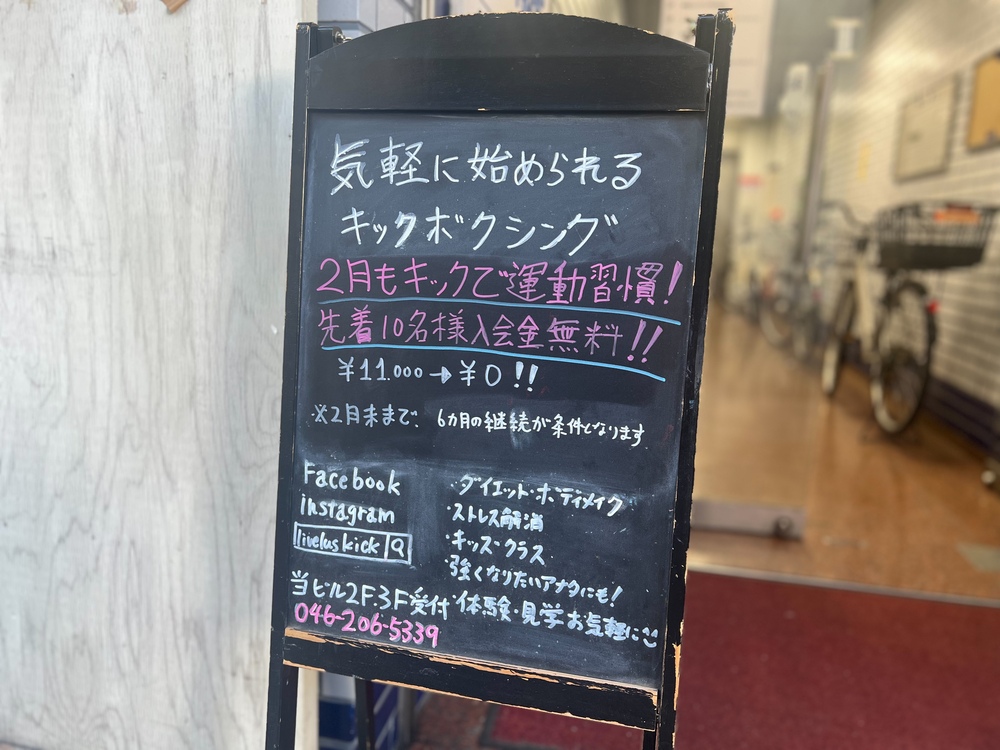 気軽に始められる
キックボクシング
2月もキックで運動習慣!
先着10名様入会金無料!!
¥11.000→¥0!!
※2月末まで、6カ月の継続が条件となります
Facebook
instagram
liveluskick
・ダイエット・ボディメイク
・ストレス解消
・キッズクラス
・強くなりたいアナタにも!
当ビル2F.3F受付
・体験・見学お気軽に
046-206-5339